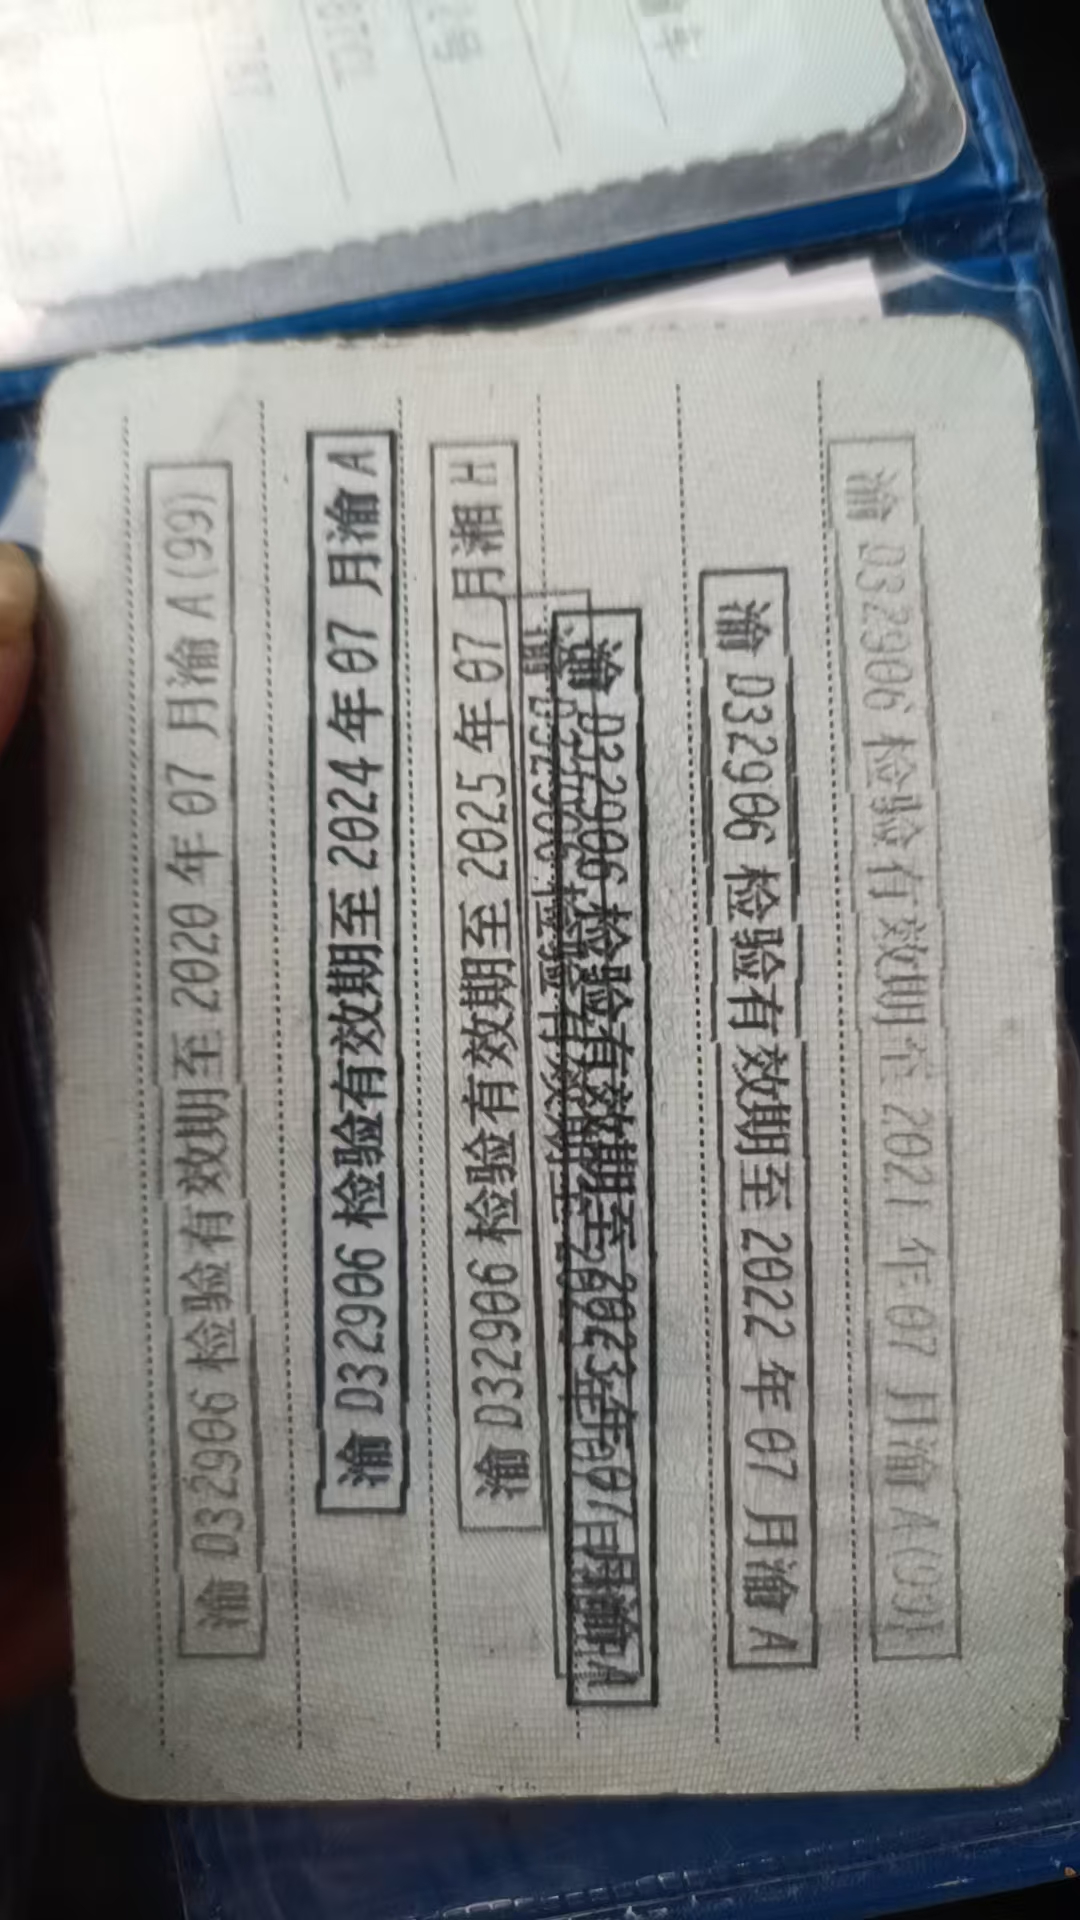 渝 D32906 检验有效期至 2020 年 07 月渝 A(99)
渝 D32906 检验有效期至 2024 年 07 月渝 A
渝 D32906 检验有效期至 2025 年 07 月湘 H
渝 D32906 检验有效期至 2023 年 07 月渝 A
渝 D32906 检验有效期至 2022 年 07 月渝 A
渝 D32906 检验有效期至 2021 年 07 月渝 A(99)